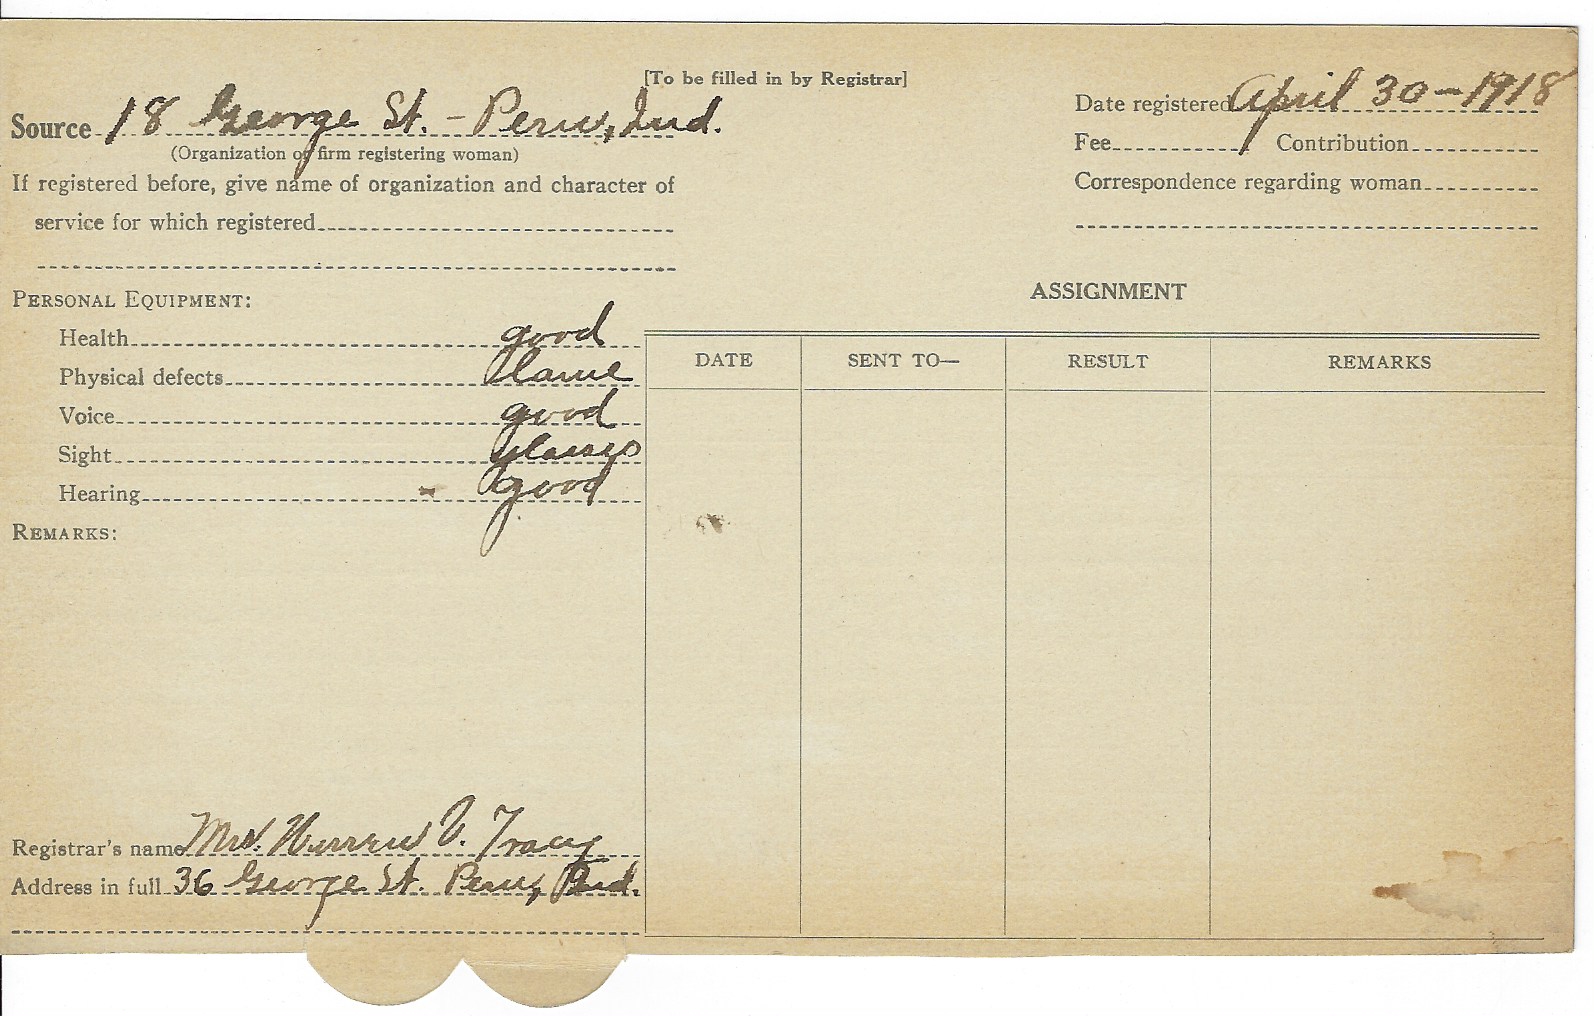 [To be filled in by Registrar]
Source 18 George St. - Peru, Ind.
(Organization or firm registering woman)
If registered before, give name of organization and character of
service for which registered
Date registered April 30-1918
Fee Contribution
Correspondence regarding woman
PERSONAL EQUIPMENT:
Health good
Physical defects lame
Voice good
Sight glasses
Hearing good
REMARKS:
Registrar's name Mrs. Warren V. Tracy
Address in full 36 George St. Peru, Ind.
ASSIGNMENT
DATE SENT TO— RESULT REMARKS